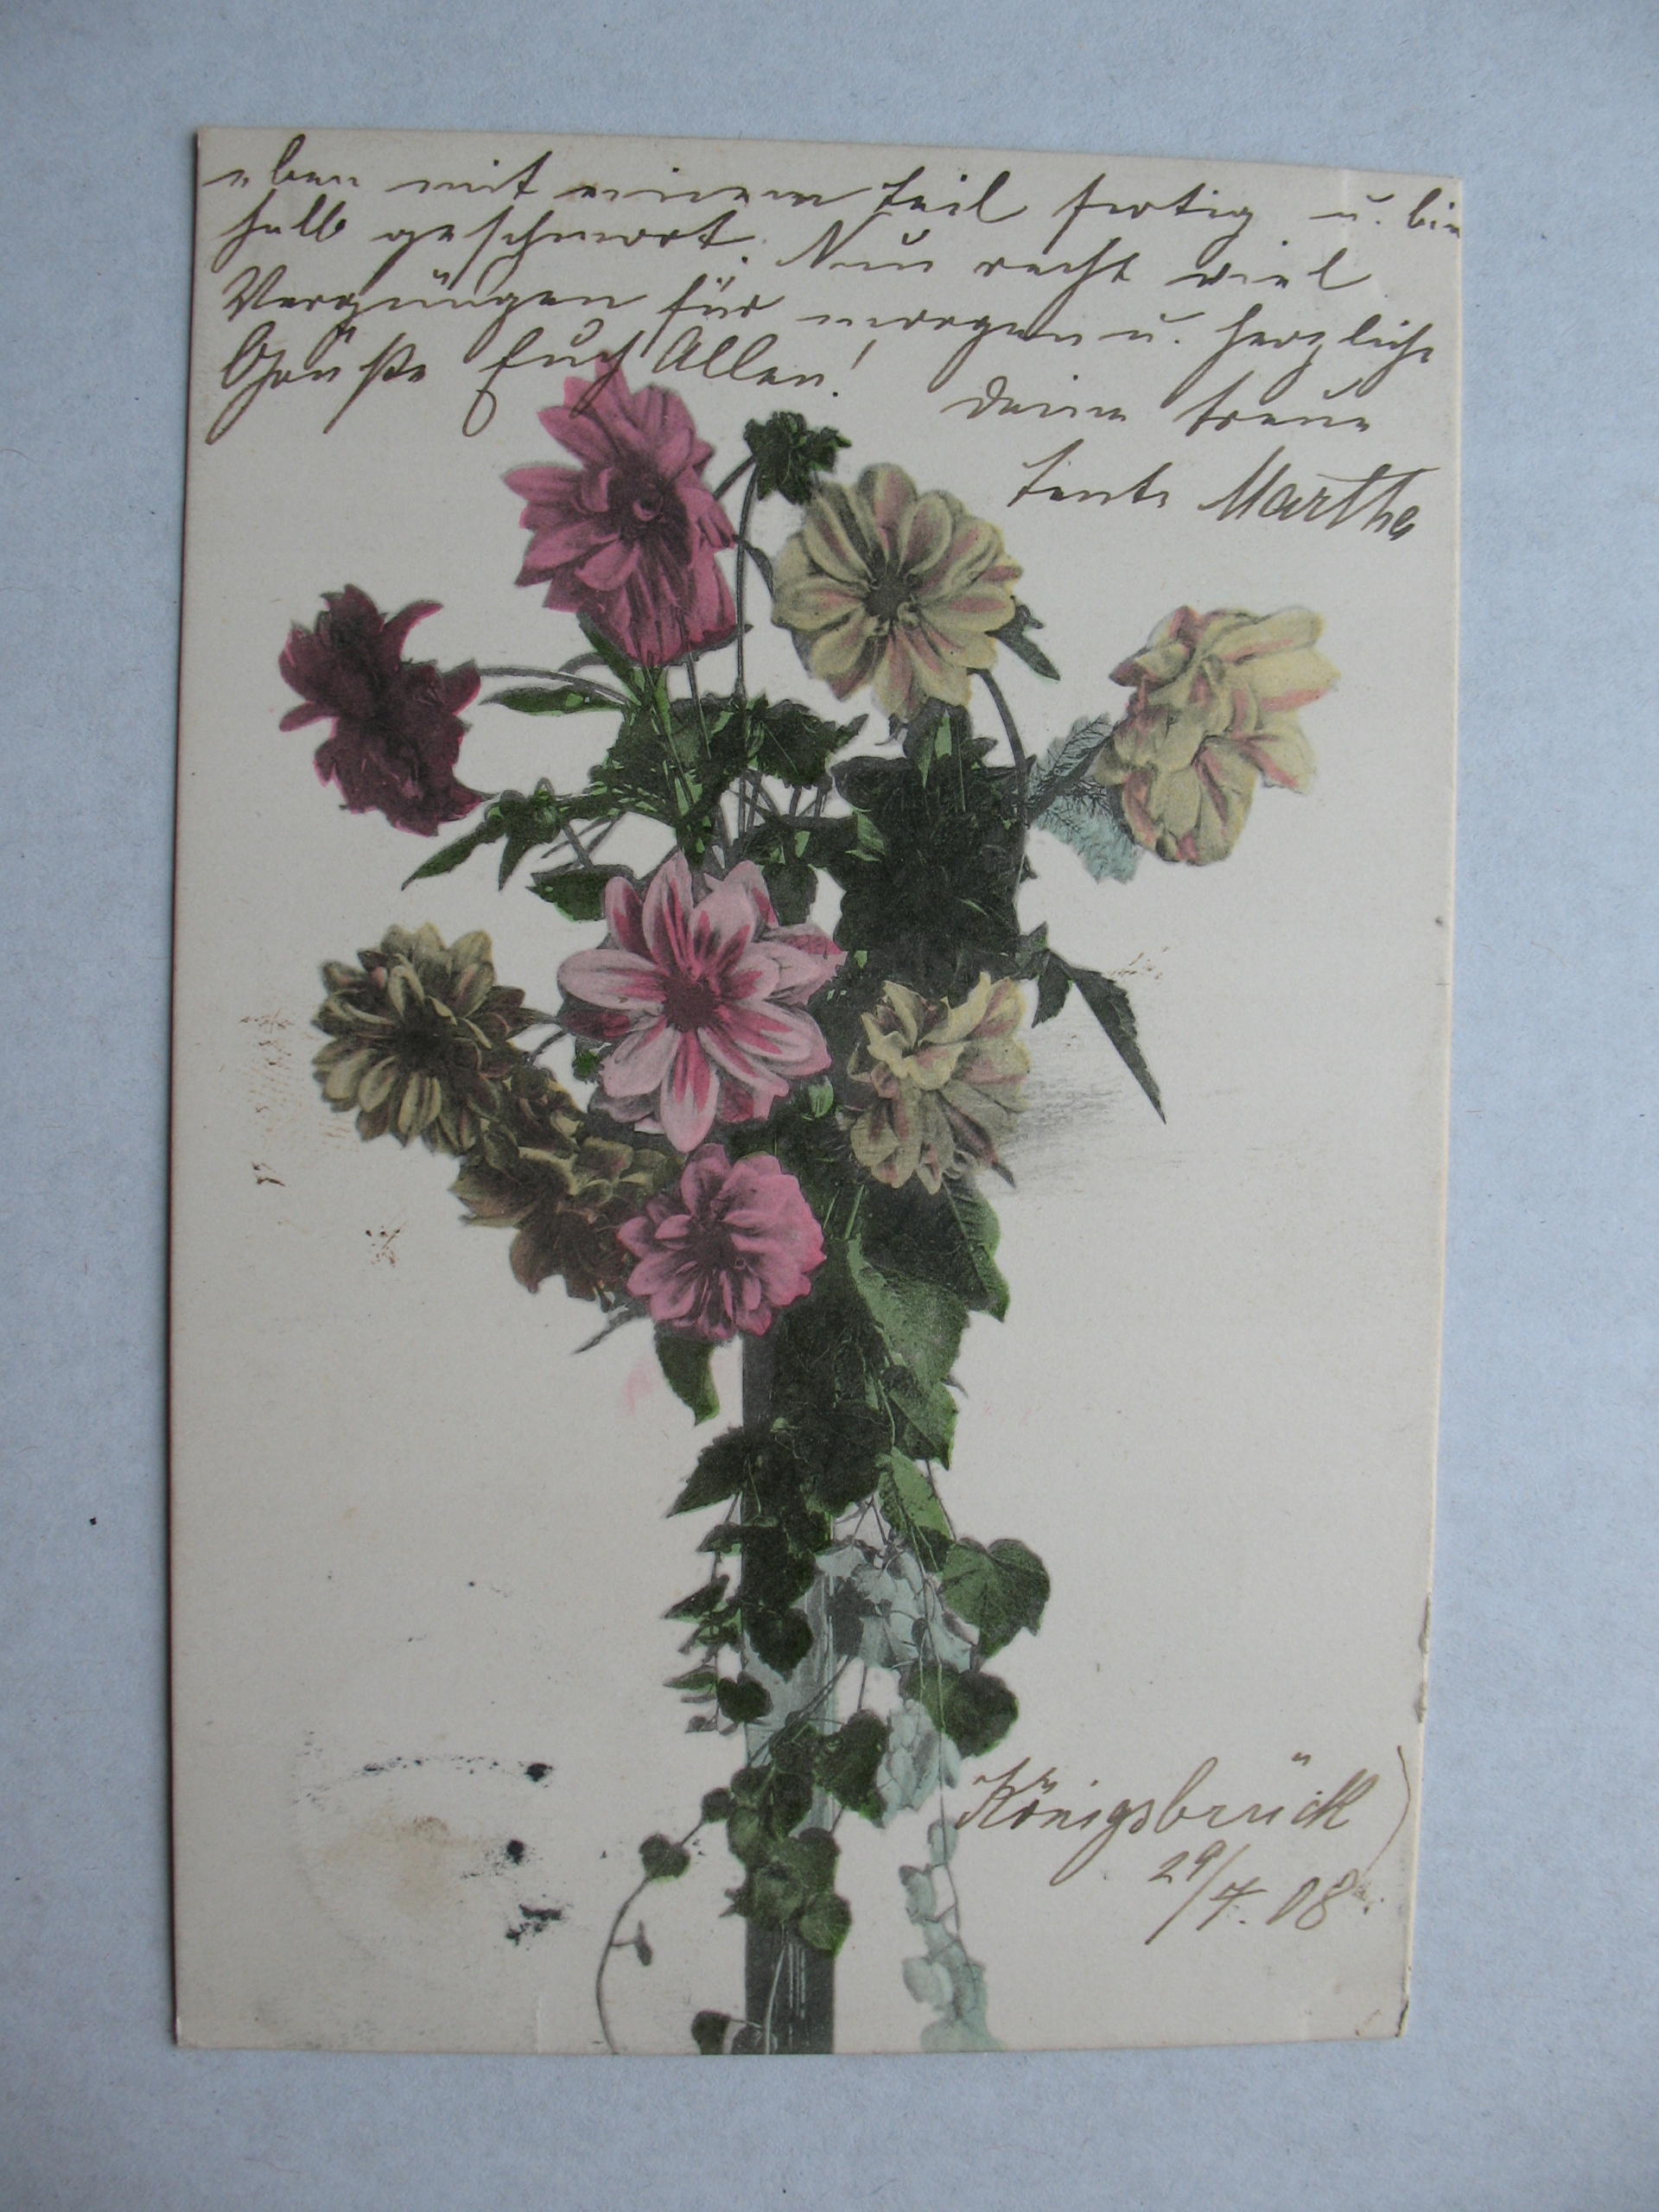 eben mit einem Teil fertig u. bin
halb geschmort. Nun recht viel
Vergnügen für morgen u. herzliche
Grüße Euch Allen!
Deine treue
Tante Martha
Königsbrück
29/7. 08.